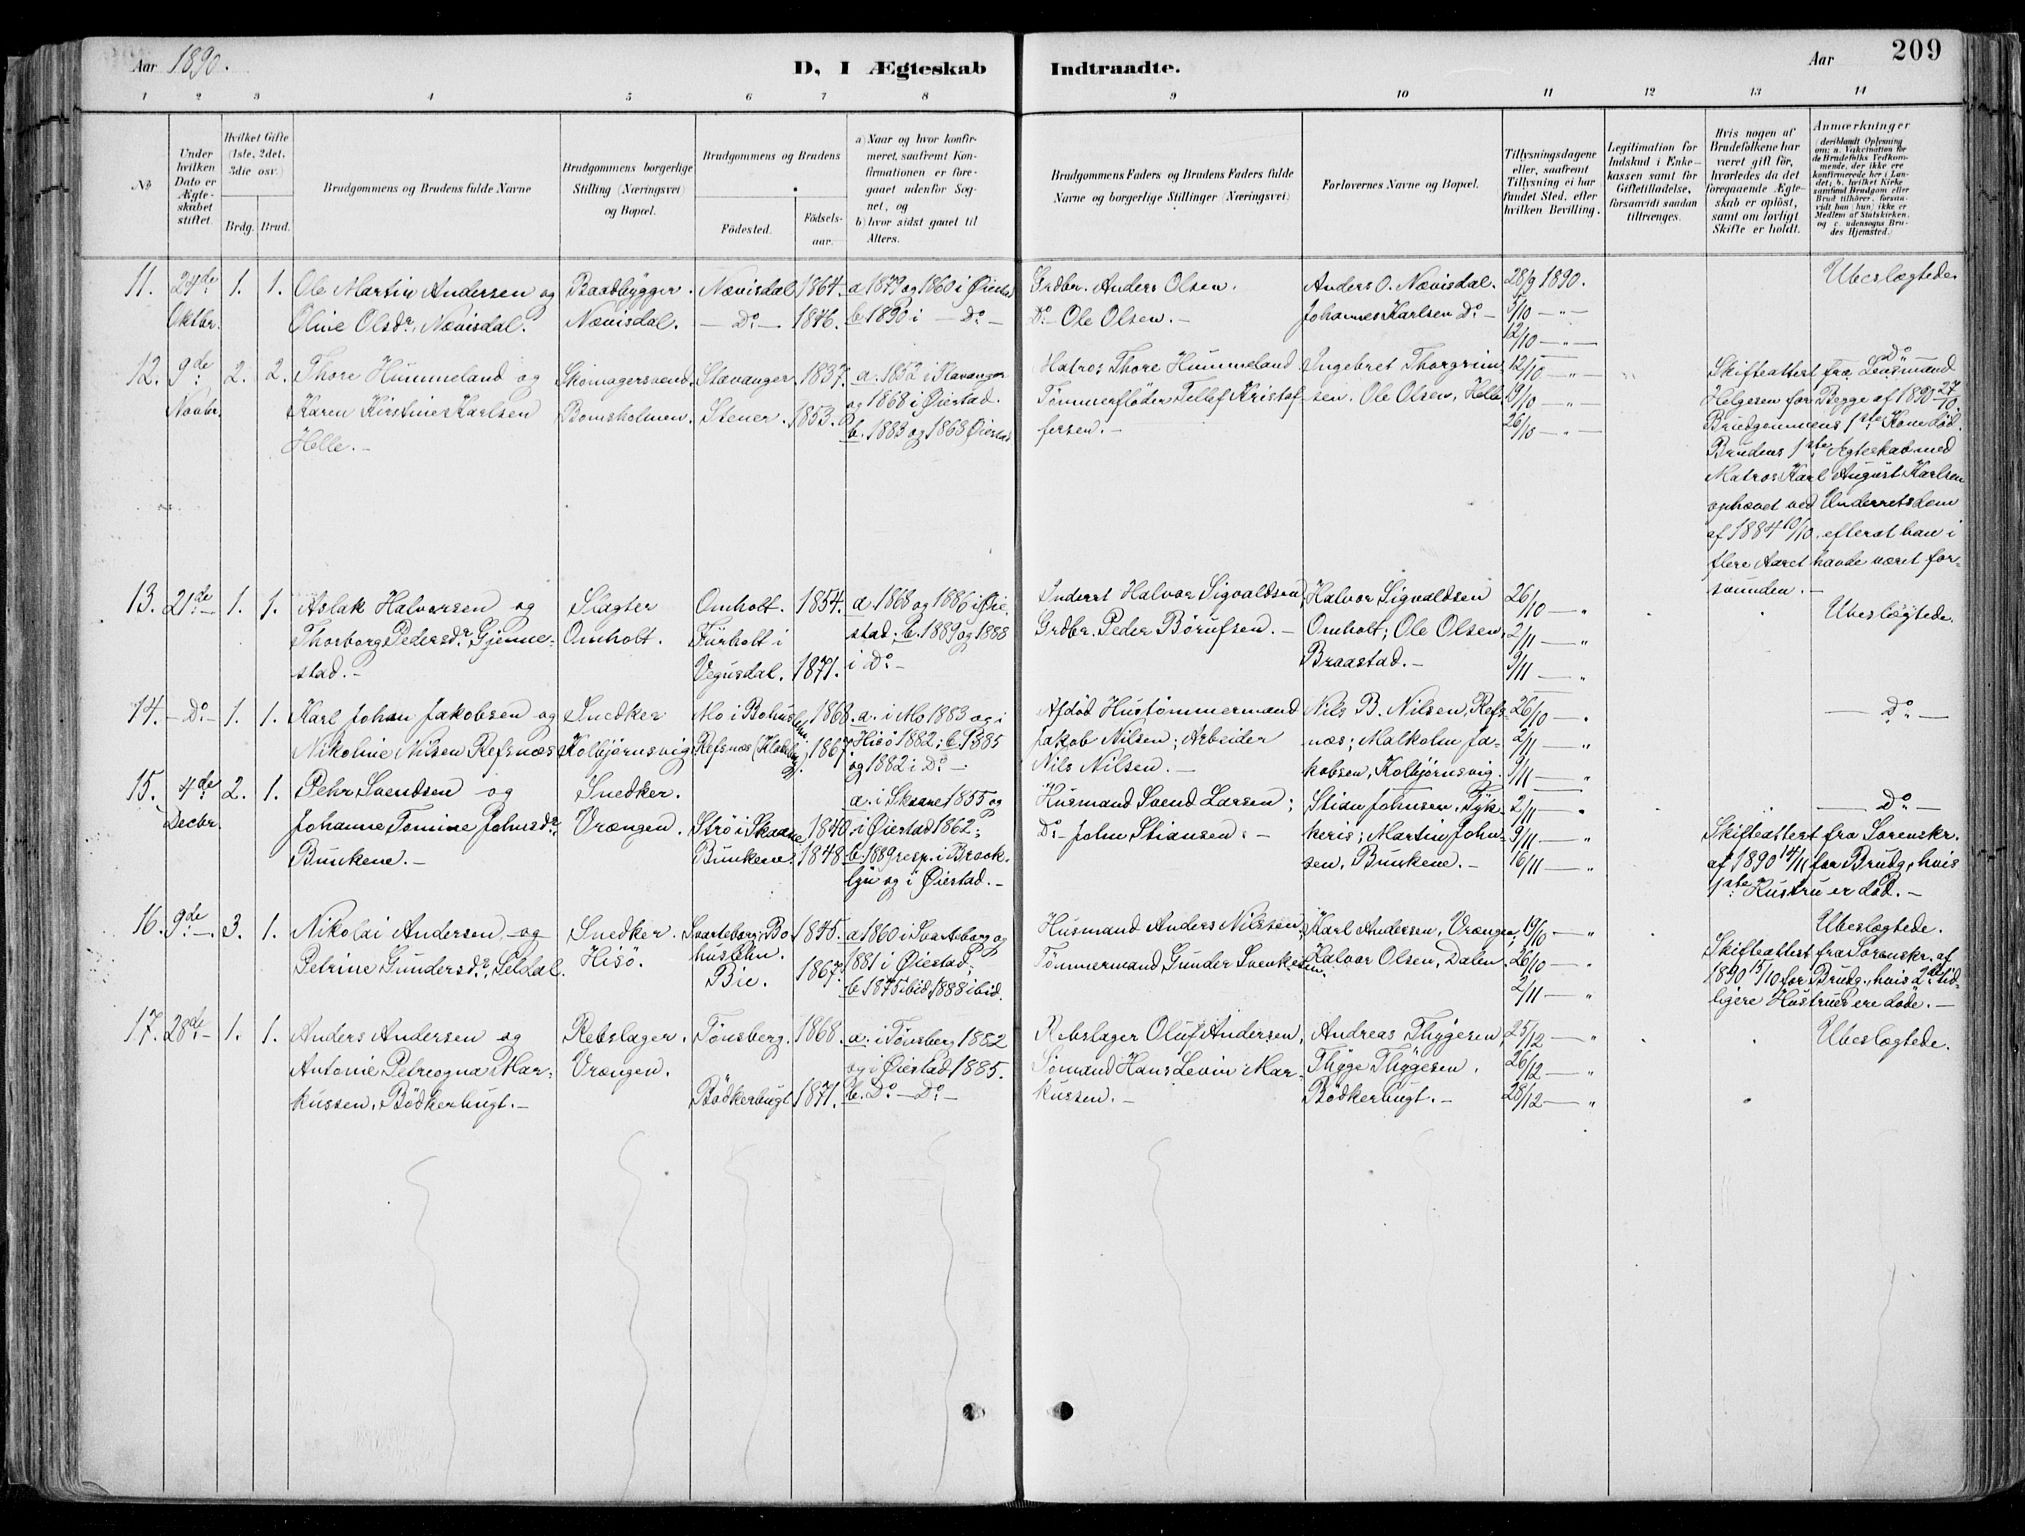 Aar 1890.
D, I Ægteskab Indtraadte.
Aar 209
1 2 3 4 5 6 7 8 9 10 11 12 13 14
№
Under hvilken Dato er Ægteskabet stiftet.
Hvilket Gifte (1ste, 2det, 3die osv.)
Brdg. Brud.
Brudgommens og Brudens fulde Navne
Brudgommens borgerlige Stilling (Næringsvei) og Bopæl.
Brudgommens og Brudens
Fødested.
Fødselsaar.
a) Naar og hvor konfirmeret, saafremt Konfirmationen er foregaaet udenfor Sognet, og
b) hvor sidst gaaet til Alters.
Brudgommens Faders og Brudens Faders fulde Navne og borgerlige Stillinger (Næringsvei)
Forlovernes Navne og Bopæl.
Tillysningsdagene eller, saafremt Tillysning ei har fundet Sted, efter hvilken Bevilling.
Legitimation for Indskud i Enkekassen samt for Giftetilladelse, forsaavidt saadan tiltrænges.
Hvis nogen af Brudefolkene har været gift før, hvorledes da det foregaaende Ægteskab er opløst, samt om lovligt Skifte er holdt.
Anmærkninger (deriblandt Oplysning om: a. Vakcination for de Brudefolks Vedkommende, der ikke ere konfirmerede her i Landet; b. hvilket Kirkesamfund Brudgom eller Brud tilhører, forsaavidt han (hun) ikke er Medlem af Statskirken, og c. udensogns Brudes Hjemsted.)
11. 24de Oktbr. 1. 1.
Ole Martin Andersen og
Oline Olsdr. Nævisdal.
Baadbygger.
Nævisdal.
Nævisdal 1864.
— Do — 1846.
a 1879 og 1860 i Øiestad
b. 1890 i — Do —
Grdbr. Anders Olsen.
Do — Ole Olsen. —
Anders O. Nævisdal.
Johannes Karlsen Do —
28/9 1890.
5/10 — " —
12/10 — " —
Ubeslægtede.
12. 9de Novbr. 2. 2.
Thore Hummeland og
Karen Kirstine Karlsen
Helle. —
Skomagersvend
Bomsholmen.
Stavanger. 1837.
Stener. 1853.
a. 1852 i Stavanger
og 1868 i Øiestad.
b. 1883 og 1868 Øiestad
Matros Thore Hummeland
Tømmerfløder Tellef Kristof-
fersen. —
Ingebret Thorgrim-
sen. Ole Olsen, Helle
12/10 — " —
19/10 — " —
26/10 — " —
Do —
Skifteattest fra Lensmand
Helgesen for Begge af 1890 27/10.
Brudgommens 1ste Kone død.
Brudens 1ste Ægteskab med
Matros Karl August Karlsen
ophævet ved Underretsdom
af 1884 10/10, efterat han i
flere Aaret havde været for-
svunden. —
13. 21de — 1. 1.
Aslak Halvorsen og
Thorborg Pedersdr. Gjenne-
stad. —
Slagter
Omholt.
Omholt. 1854.
Furholt i
Vegusdal. 1871.
a. 1868 og 1886 i Øie-
stad; b. 1889 og 1888
i Do —
Inderst Halvor Sigvaldsen
Grdbr. Peder Børufsen. —
Halvor Sigvaldsen
Omholt; Ole Olsen,
Braastad. —
26/10 — "
2/11 — "
9/11 — "
Ubeslægtede.
14. — Do — 1. 1.
Karl Johan Jakobsen og
Nikoline Nilsen Refsnæs
Snedker
Kolbjørnsvig
Mo i Bohuslehn. 1868.
Refsnæs 1867.
a. i Mo 1883 og i
Hisø 1882; b. 1885
og 1882 i Do —
Afdød Hustømmermand
Jakob Nilsen; Arbeider
Nils Nilsen. —
Nils B. Nilsen, Refs-
næs; Malkolm Ja-
kobsen, Kolbjørnsvig.
26/10 — "
2/11 — "
9/11 — "
— Do —
15. 4de Decbr. 2. 1.
Pehr Svendsen og
Johanne Tomine Johnsdr.
Bunkene. —
Snedker.
Vrængen.
Strø i Skaane 1840.
Bunkene 1848.
a. i Skaane 1855 og
i Øiestad 1862;
b. 1889 resp. i Bræk-
ljni og i Øiestad. —
Husmand Svend Larsen;
Do — John Stiansen. —
Stian Johnsen, Tyk-
keris; Martin John-
sen, Bunkene. —
2/11 — "
9/11 — "
16/11 — "
— Do —
Skifteattest fra Sorenskr.
af 1890 14/11 for Brudg., hvis
1ste Hustru er død. —
16. 9de —. 3. 1.
Nikolai Andersen og
Petrine Gundersdr. Seldal.
Snedker.
Hisø.
Svarteborg, Bo-
huslehn. 1845.
Bie. 1867.
a 1860 i Svarteborg og
1881 i Øiestad;
b. 1875 ibid. 1888 ibid.
Husmand Anders Nilsson,
Tømmermand Gunder Svenkesen.
Karl Andersen, Vrængen,
Halvor Olsen, Dalen
19/10 — "
26/10 — "
2/11 — "
Ubeslægtede.
Skifteattest fra Sorenskr. af
1890 15/10 for Brudg., hvis 2de tid-
ligere Hustruer ere døde. —
17. 28de — 1. 1.
Anders Andersen og
Antonie Petreogna Mar-
kussen, Bödkerbugt. —
Rebslager.
Vrængen.
Tönsberg. 1868.
Bödkerbugt 1871.
a. i Tönsberg 1882
og i Øiestad 1885.
b. Do — Do —
Rebslager Oluf Andersen,
Sømand Hans Levin Mar-
kussen. —
Andreas Thygesen,
Thyge Thygesen,
Bödkerbugt. —
25/12 — "
26/12 — "
28/12 — "
Ubeslægtede.